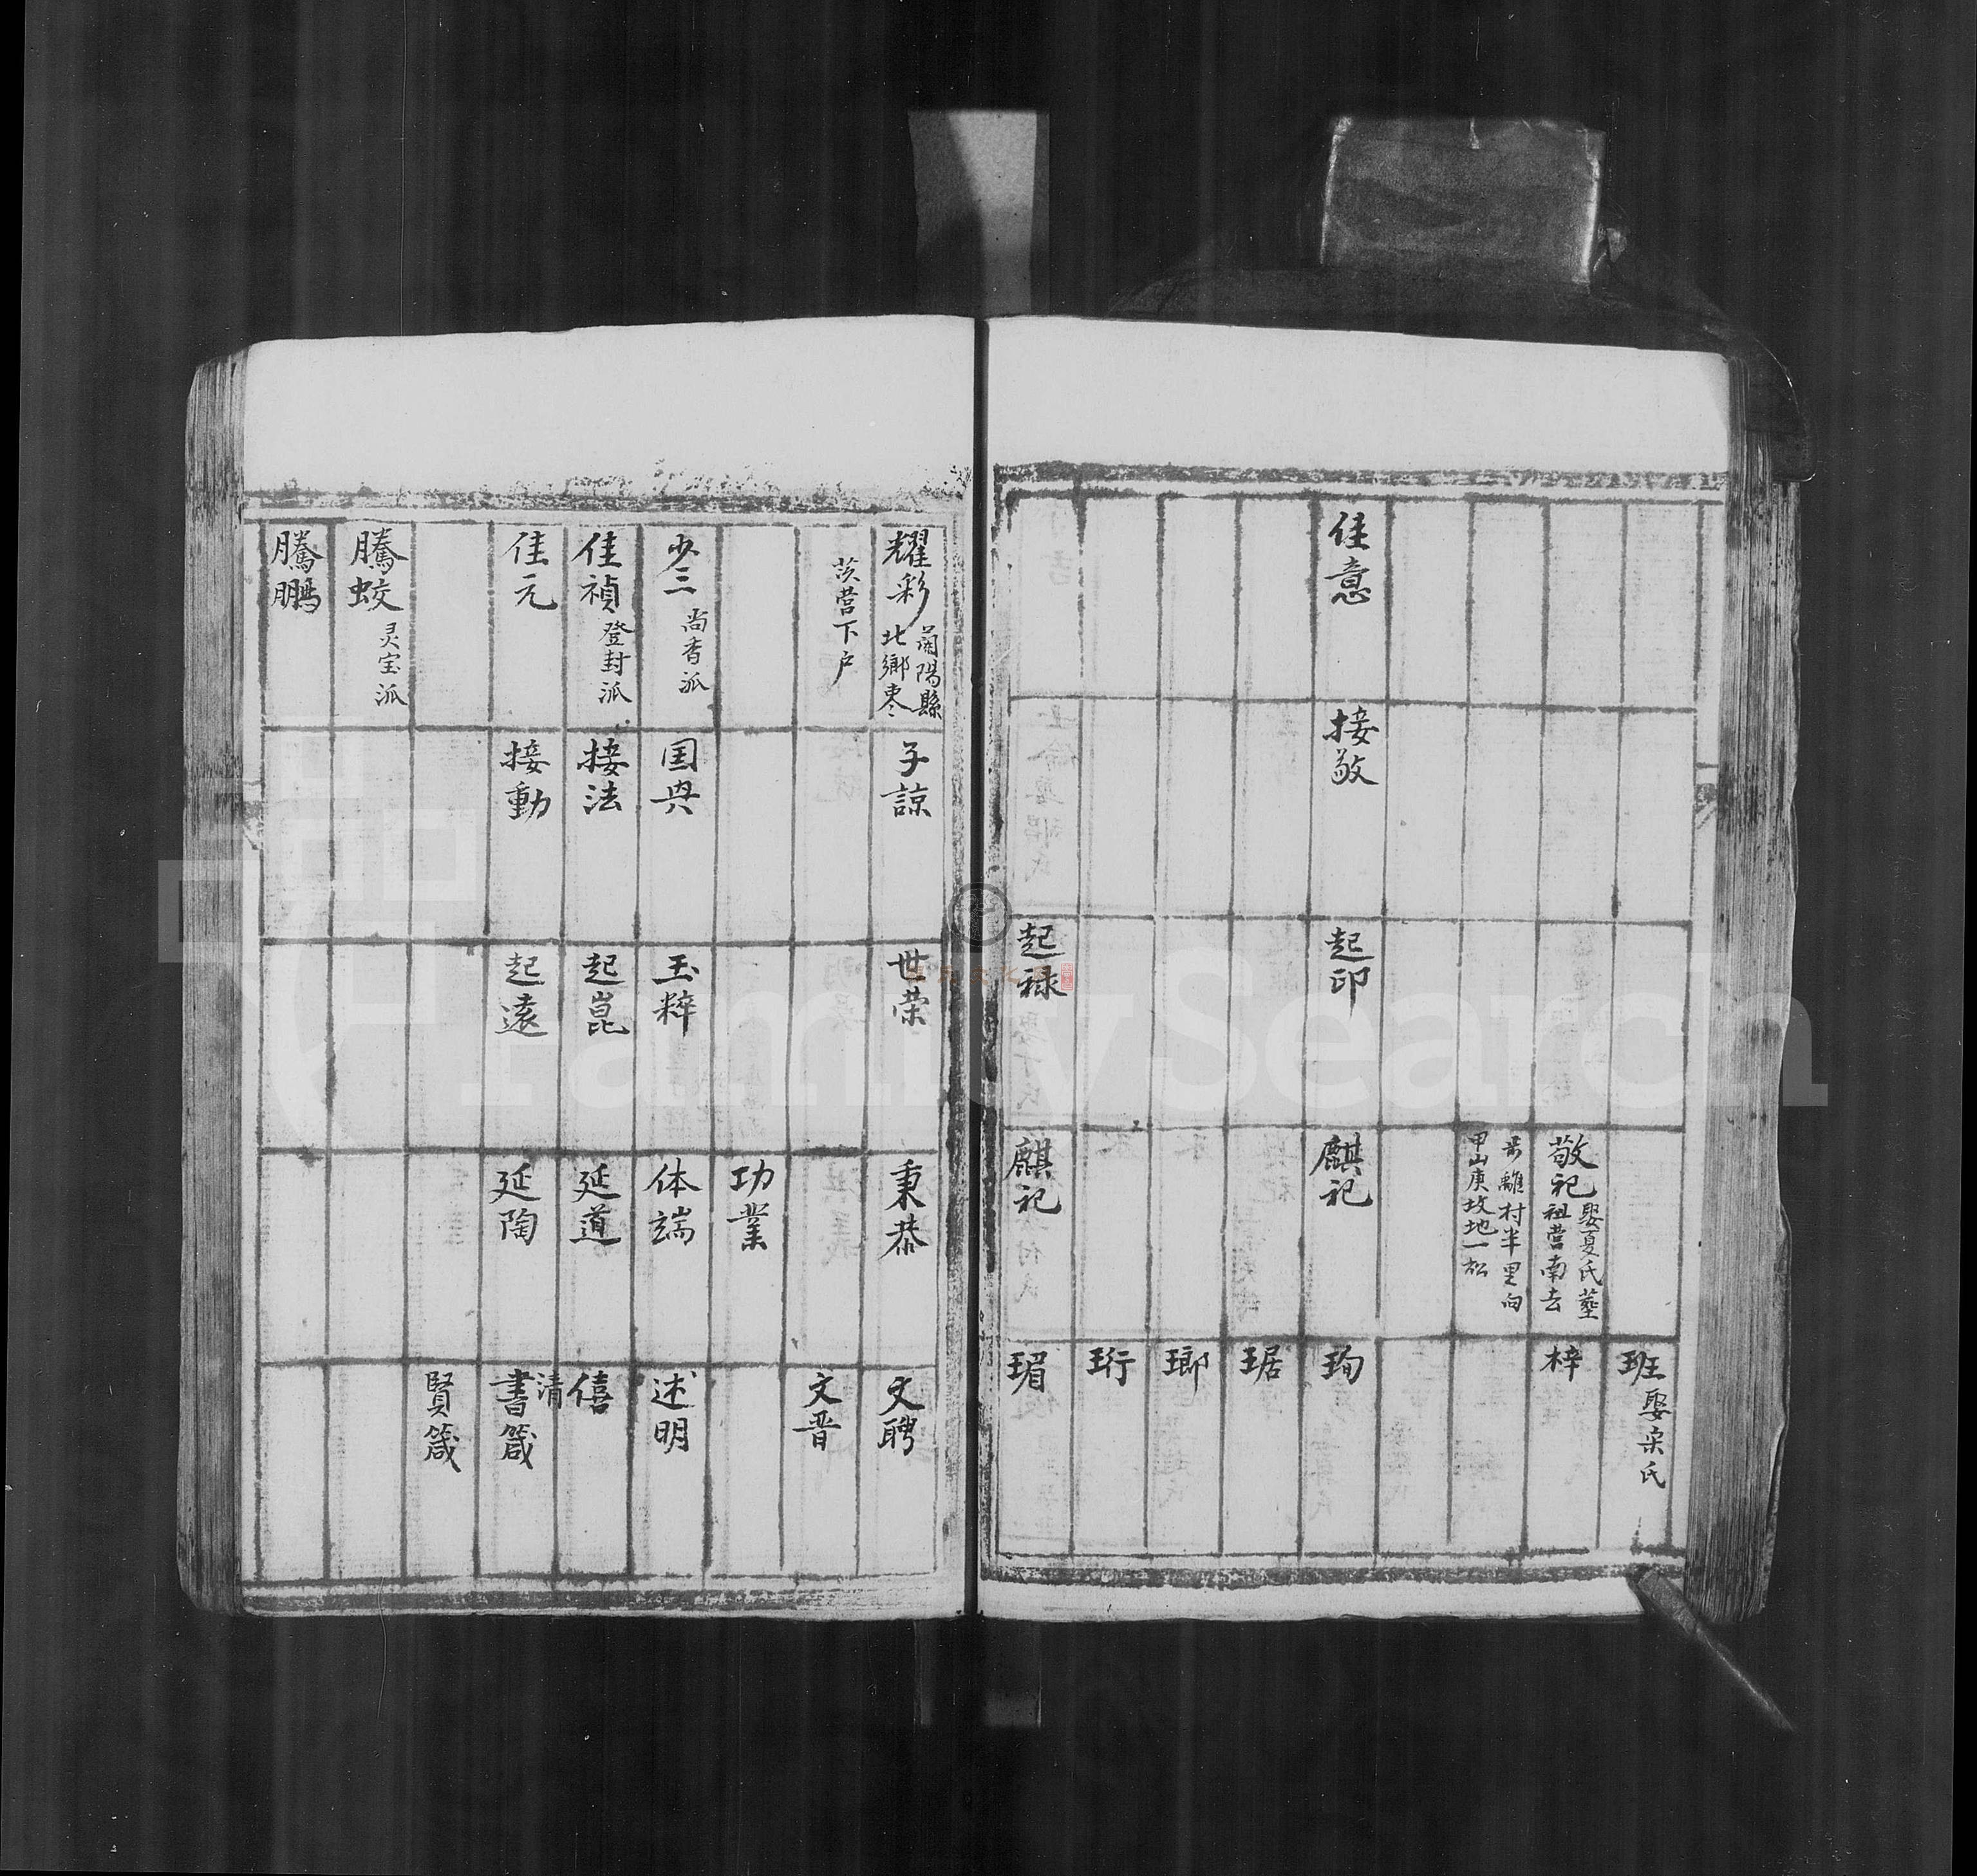 佳意
接敬
起印
起禄
敬祀
娶夏氏葬
祖营南去
离村半里向
甲山庚坟地一松
麒祀
麒祀
班
娶宋氏
梓
珣
琚
瑯
珩
瑂
耀彩
蘭陽縣
北鄉枣
茨营下户
少三
尚香派
佳禎
登封派
佳元
騰蛟
灵宝派
騰鵬
子諒
国典
接法
接動
世荣
玉粹
起崑
起遠
秉恭
功業
体端
延道
延陶
文聘
文晋
述明
僖
清
書箴
賢箴
FamilySearch